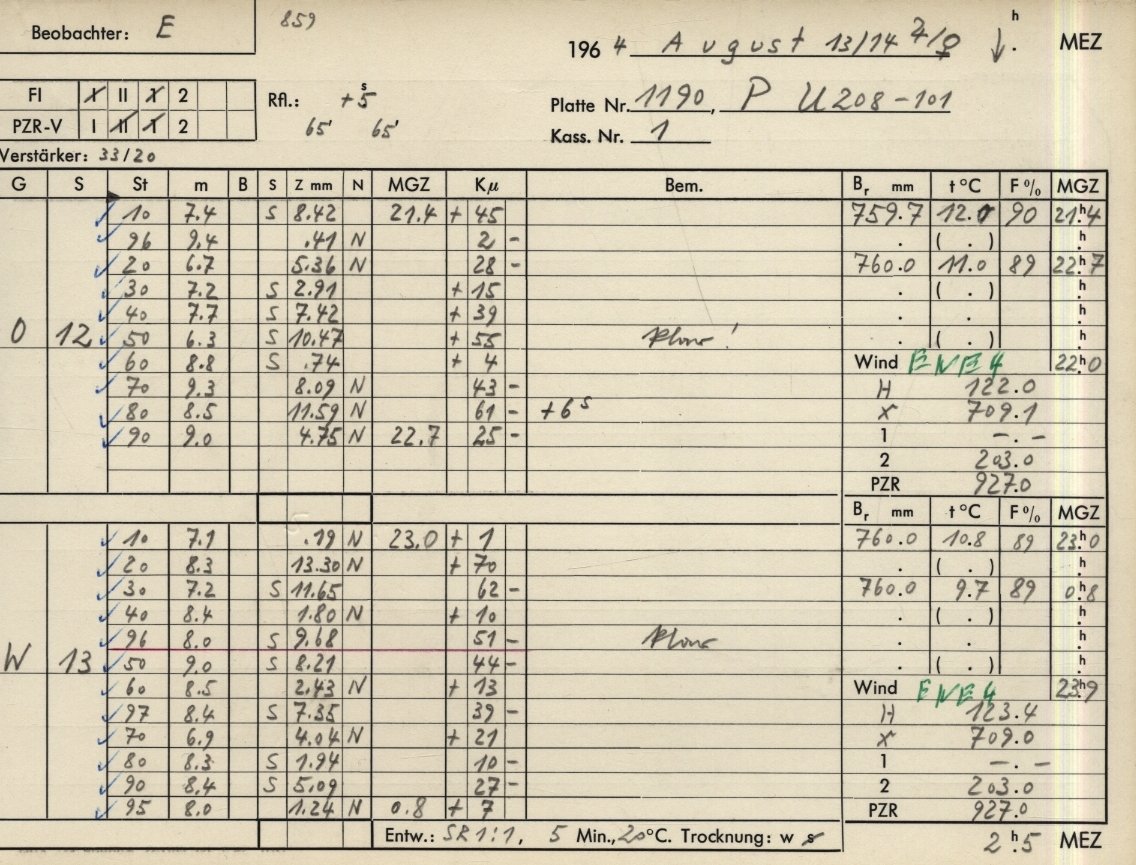 Beobachter: E 859
1964 August 13/14 ♃/♀ h . MEZ
FI I II 1 2 Rfl.: +5 s
Platte Nr. 1190, P U208-101
PZR-V I II 1 2 65' 65'
Kass. Nr. 1
Verstärker: 33/20
G S St m B S Z mm N MGZ Kμ Bem. Br mm t °C F % MGZ
10 7.4 S 8.42 21.4 + 45 759.7 12.0 90 21h4
96 9.4 .41 N 2 - . ( . ) h.
20 6.7 5.36 N 28 - 760.0 11.0 89 22h7
30 7.2 S 2.91 + 15 . ( . ) h.
40 7.7 S 7.42 + 39 . . h.
O 12 50 6.3 S 10.47 + 55 klar! . ( . ) h.
60 8.8 S .74 + 4 Wind ENE 4 22h0
70 9.3 8.09 N 43 - H 122.0
80 8.5 11.59 N 61 - +6 s X 709.1
90 9.0 4.75 N 22.7 25 - 1 -.-
2 203.0
PZR 927.0
Br mm t °C F % MGZ
10 7.1 .19 N 23.0 + 1 760.0 10.8 89 23h0
20 8.3 13.30 N + 70 . ( . ) h.
30 7.2 S 11.65 62 - 760.0 9.7 89 0h8
40 8.4 1.80 N + 10 . ( . ) h.
96 8.0 S 9.68 51 - klar . . h.
W 13 50 9.0 S 8.21 44 - . ( . ) h.
60 8.5 2.43 N + 13 Wind ENE 4 23h9
97 8.4 S 7.35 39 - H 123.4
70 6.9 4.04 N + 21 X 709.0
80 8.3 S 1.94 10 - 1 -.-
90 8.4 S 5.09 27 - 2 203.0
95 8.0 1.24 N 0.8 + 7 PZR 927.0
Entw.: SR 1:1, 5 Min., 20°C. Trocknung: w s 2h5 MEZ